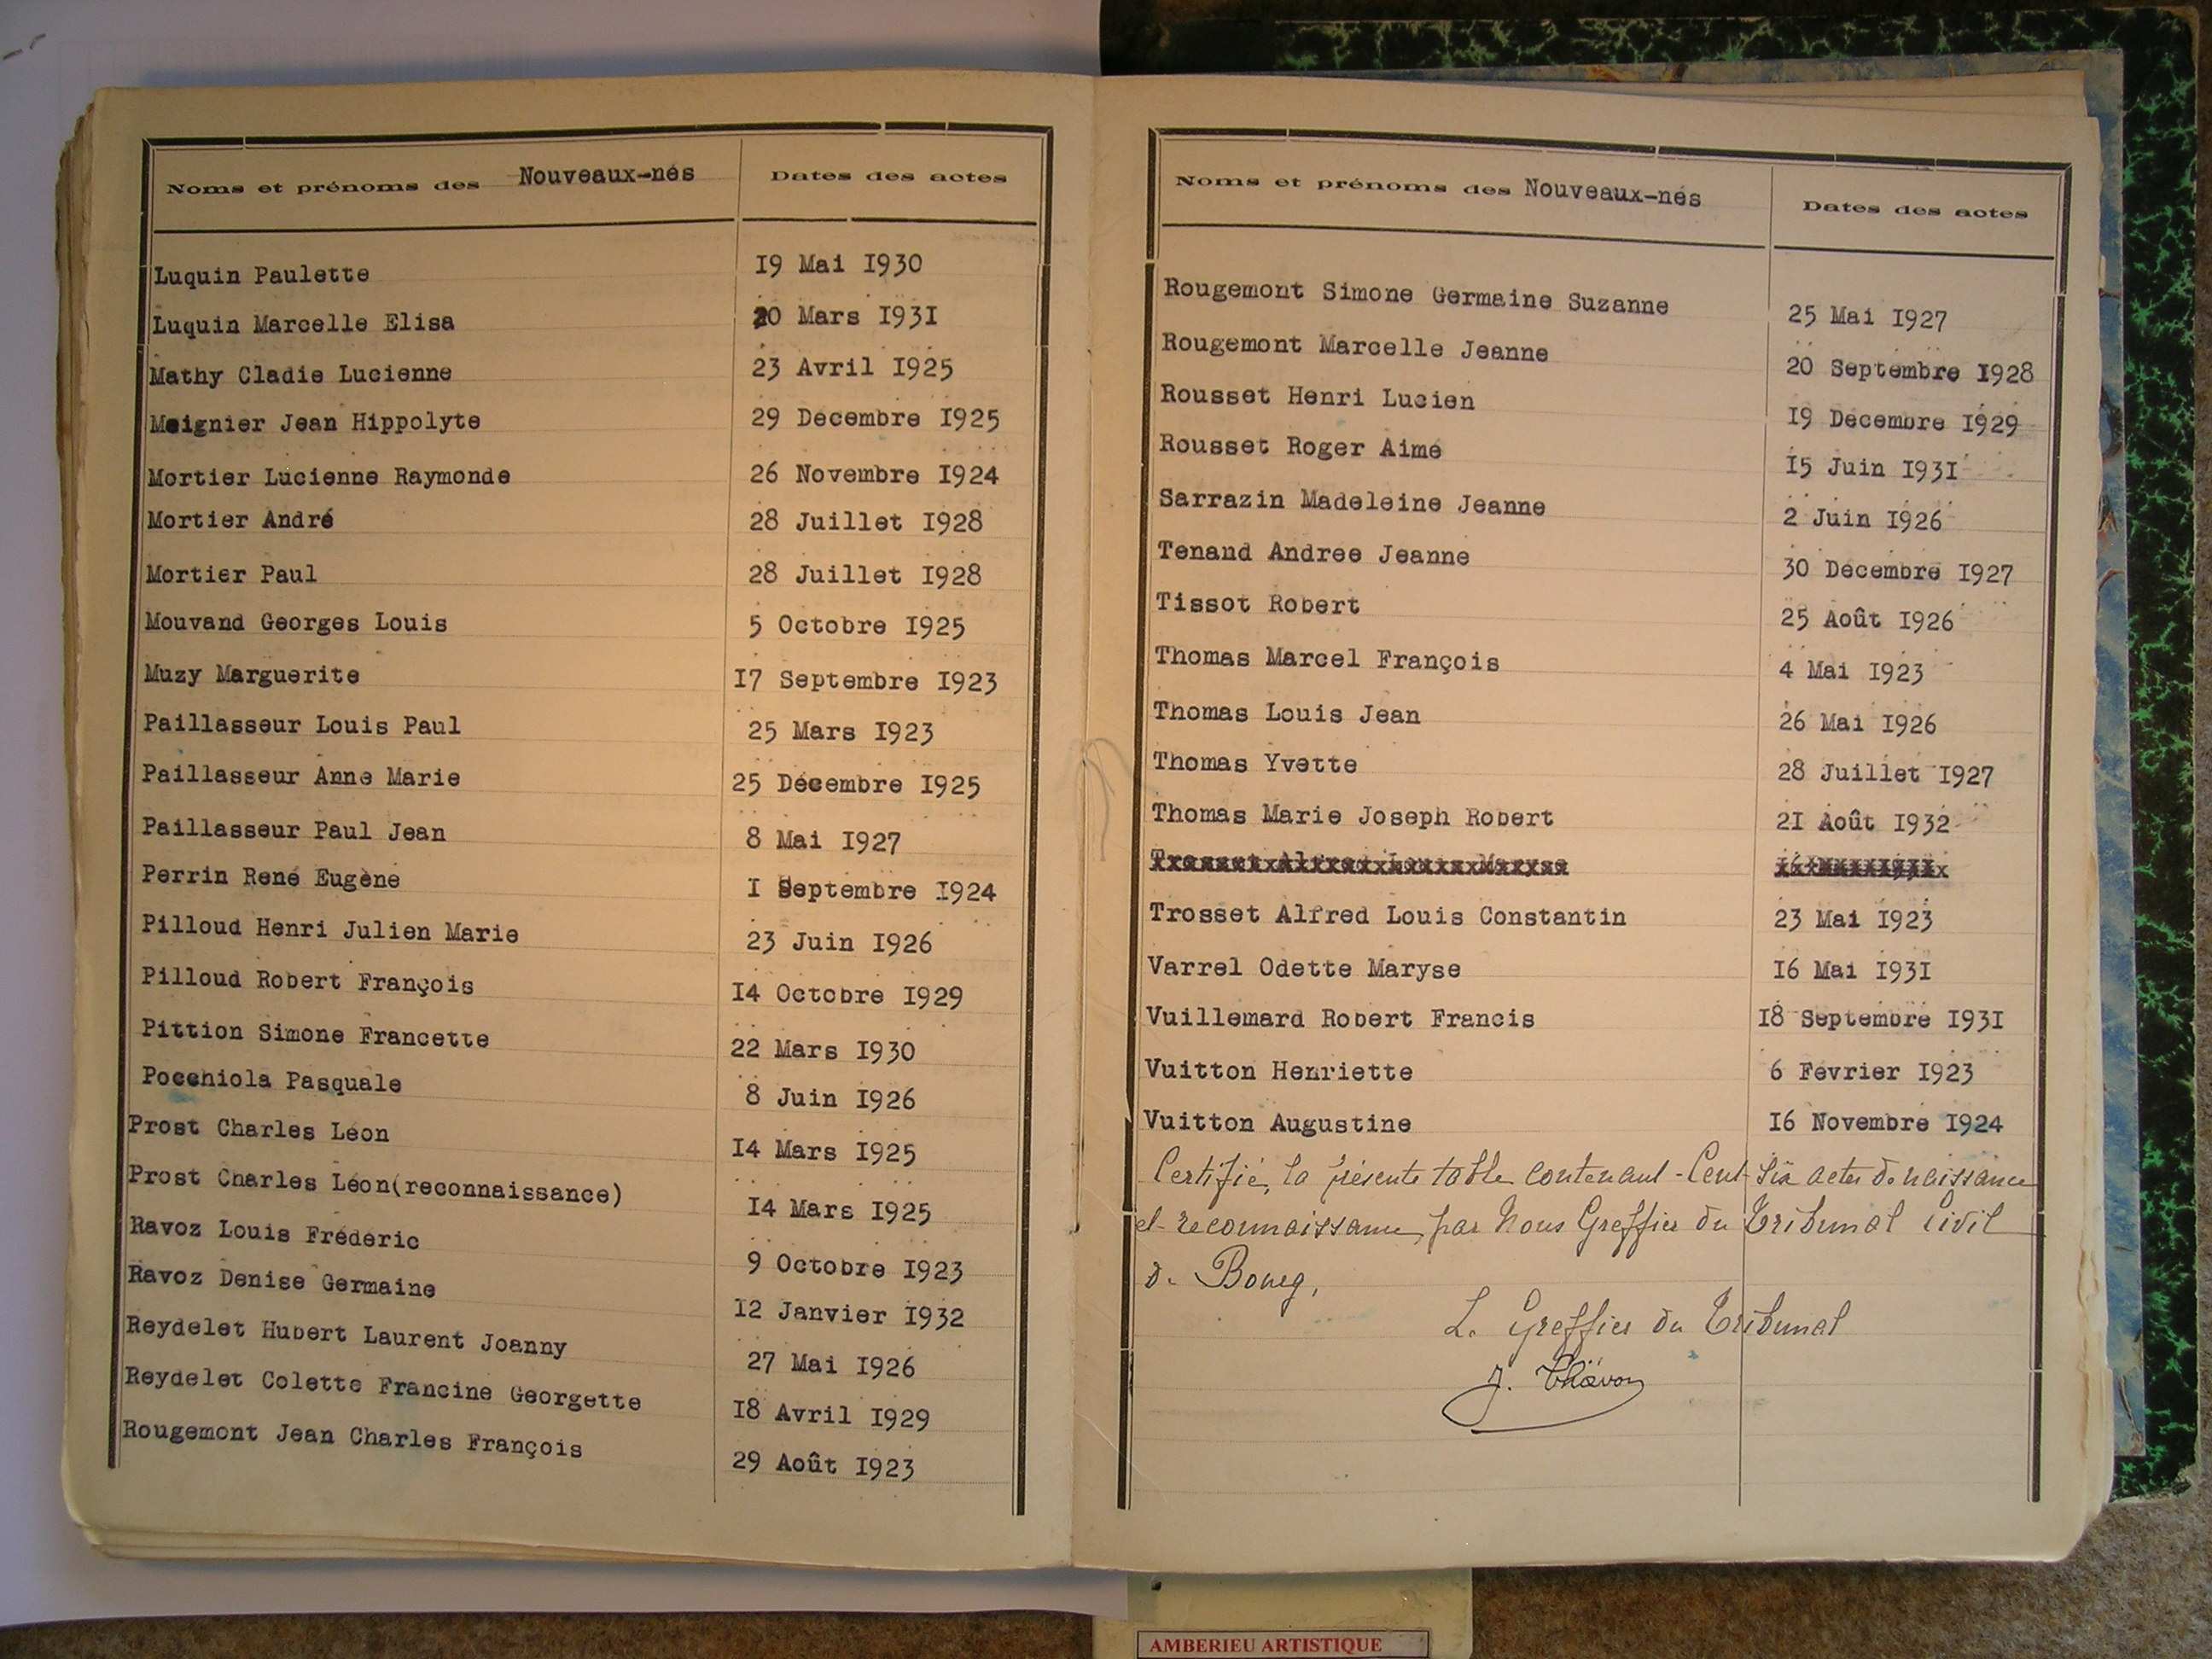 Noms et prénoms des Nouveaux-nés Dates des actes
Luquin Paulette 19 Mai 1930
Luquin Marcelle Elisa 20 Mars 1931
Mathy Cladie Lucienne 23 Avril 1925
Meignier Jean Hippolyte 29 Décembre 1925
Mortier Lucienne Raymonde 26 Novembre 1924
Mortier André 28 Juillet 1928
Mortier Paul 28 Juillet 1928
Mouvand Georges Louis 5 Octobre 1925
Muzy Marguerite 17 Septembre 1923
Paillasseur Louis Paul 25 Mars 1923
Paillasseur Anne Marie 25 Décembre 1925
Paillasseur Paul Jean 8 Mai 1927
Perrin René Eugène 1 Septembre 1924
Pilloud Henri Julien Marie 23 Juin 1926
Pilloud Robert François 14 Octobre 1929
Pittion Simone Francette 22 Mars 1930
Pocchiola Pasquale 8 Juin 1926
Prost Charles Léon 14 Mars 1925
Prost Charles Léon(reconnaissance) 14 Mars 1925
Ravoz Louis Fréderic 9 Octobre 1923
Ravoz Denise Germaine 12 Janvier 1932
Reydelet Hubert Laurent Joanny 27 Mai 1926
Reydelet Colette Francine Georgette 18 Avril 1929
Rougemont Jean Charles François 29 Août 1923
Noms et prénoms des Nouveaux-nés Dates des actes
Rougemont Simone Germaine Suzanne 25 Mai 1927
Rougemont Marcelle Jeanne 20 Septembre 1928
Rousset Henri Lucien 19 Décembre 1929
Rousset Roger Aimé 15 Juin 1931
Sarrazin Madeleine Jeanne 2 Juin 1926
Tenand Andree Jeanne 30 Décembre 1927
Tissot Robert 25 Août 1926
Thomas Marcel François 4 Mai 1923
Thomas Louis Jean 26 Mai 1926
Thomas Yvette 28 Juillet 1927
Thomas Marie Joseph Robert 21 Août 1932
Trosset Alfred Louis Constantin 23 Mai 1923
Varrel Odette Maryse 16 Mai 1931
Vuillemard Robert Francis 18 Septembre 1931
Vuitton Henriette 6 Février 1923
Vuitton Augustine 16 Novembre 1924
Certifié, la présente table contenant Cent Six actes de naissance
et reconnaissance, par Nous Greffier du Tribunal Civil
de Bourg,
Le Greffier du Tribunal
AMBERIEU ARTISTIQUE